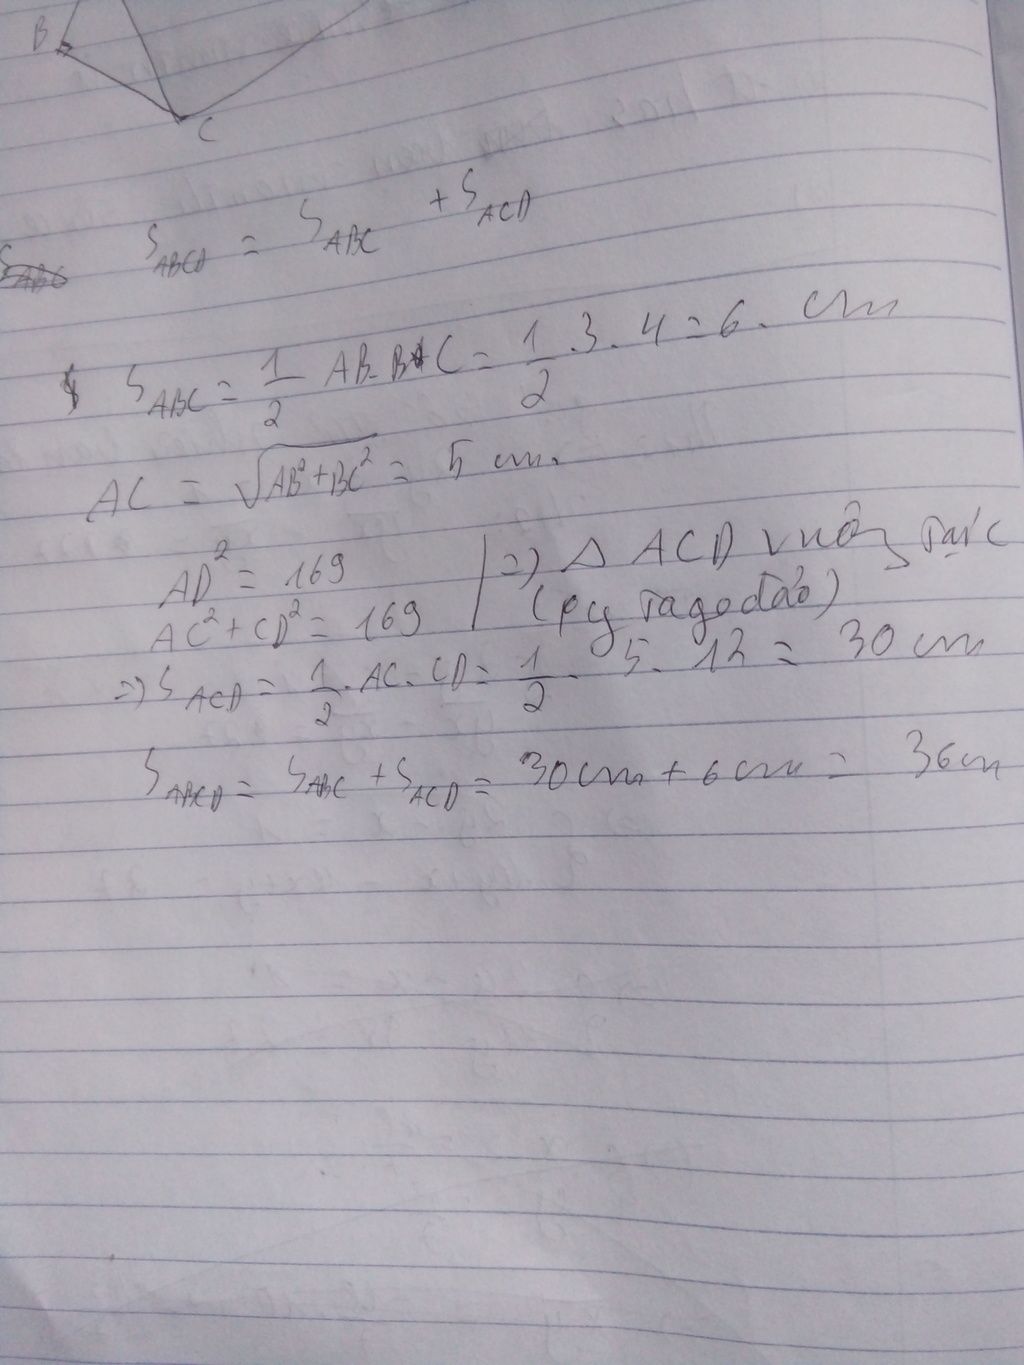 B
C
S_ABCD = S_ABC + S_ACD
S_ABC = 1/2 AB. BC = 1/2 .3. 4 = 6. cm
AC = √(AB² + BC²) = 5 cm.
AD² = 169
AC² + CD² = 169
=) Δ ACD vuông tại C
(py tago đảo)
=) S_ACD = 1/2 . AC. CD = 1/2 . 5. 12 = 30 cm
S_ABCD = S_ABC + S_ACD = 30cm + 6cm = 36cm